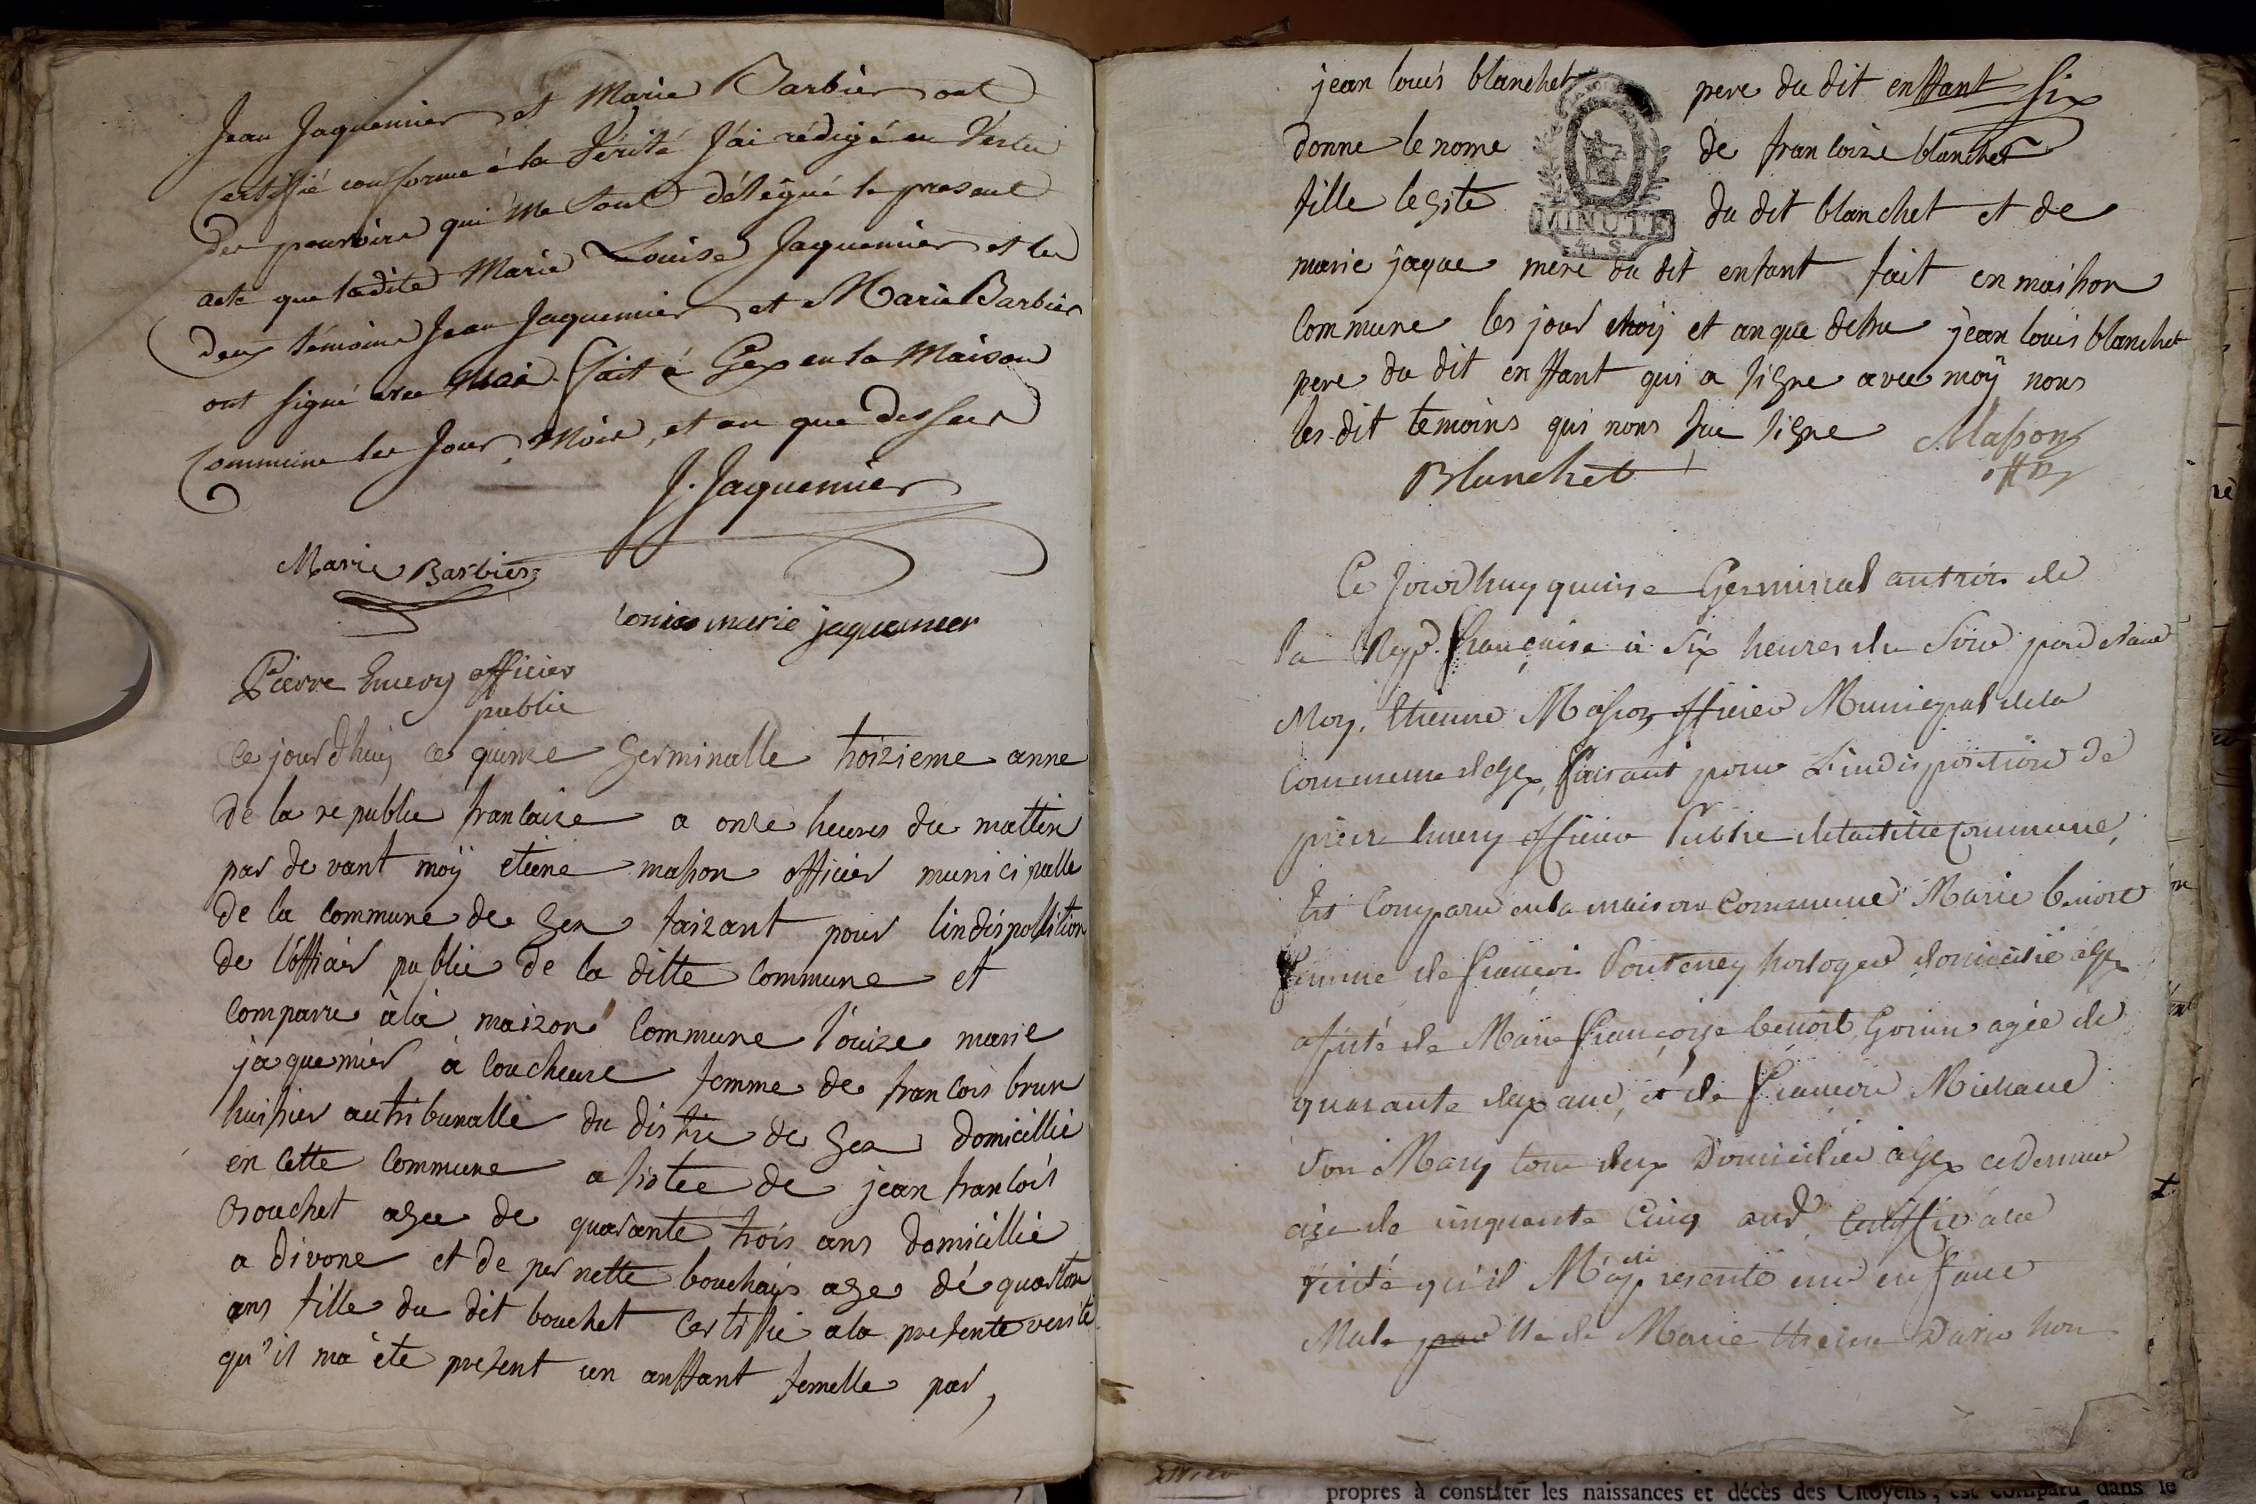 Jean Jaquemier et Marie Barbier ont
Certiffié conforme à la Vérité J'ai rédigé en Vertu
des pouvoirs qui me sont délégué le present
acte que ladite Marie Louise Jaquemier et les
deux témoins Jean Jaquemier et Marie Barbier
ont signé avec moi. fait à Gex en la Maison
Commune les Jour, Mois, et an que dessus
J. Jaquemier
Marie Barbier
louise marie jaquemier
Pierre Emery officier
public
Ce jourdhuij ce quinze Germinalle troizieme anne
de la republie francaize a onze heures du mattin
par de vant moÿ etiene masson officier municipalle
de la commune de Gex faizant pour lindispossition
de l'officier publie de la ditte commune et
comparu à la maizon commune l'ouize marie
jaquemier à coucheuze femme de francois brun
huissier au tribunalle du distric de Gex domicillié
en cette commune assistee de jean francois
Bouchet agee de quarante trois ans domicillié
a divone et de pernette bouchais age de quaston
ans fille du dit bouchet certiffie a la presente verité
qu'il ma été present un anffant femelle par,
jean louis blanchet pere du dit enffant six
donne le nome de francoize blanchet
fille legite du dit blanchet et de
MINUTE
4. S.
marie jaque mere du dit enfant fait en maison
commune les jour moij et an que desu jean louis blanchet
pere du dit enffant qui a signe avec moÿ nons
les dit temoins qui nons sue signe Masson
Blanchet off m
Ce Jourdhuy quinze Germinal an trois de
la Rep. française à six heures du Soir pardevant
Moy, Etienne Masson officier Municipal de la
commune de Gex, faisant pour l'indisposition de
pierre Emery officier Public de ladite Commune,
Est Comparu en la maison Commune Marie benoit
femme de françois Ponteney horloger domicilié à Gex
assisté de Marie françoise benoit Gorin agée de
quarante deux ans, et de françois Michaud
son Mary tous deux Domiciliés à Gex ce dernier
agé de cinquante Cinq ans, Certiffie à la
vérité qu'il M'a été presenté un enfant
Male par lle de Marie therese Davis hors
propres à constater les naissances et décès des Citoyens, est comparu dans le